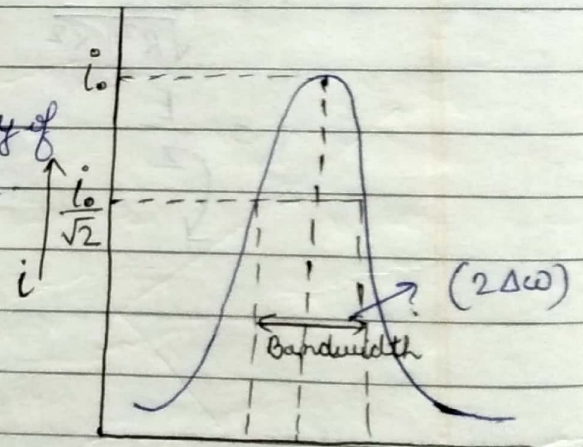 i₀
y of
i₀/√2
i
? (2Δω)
Bandwidth